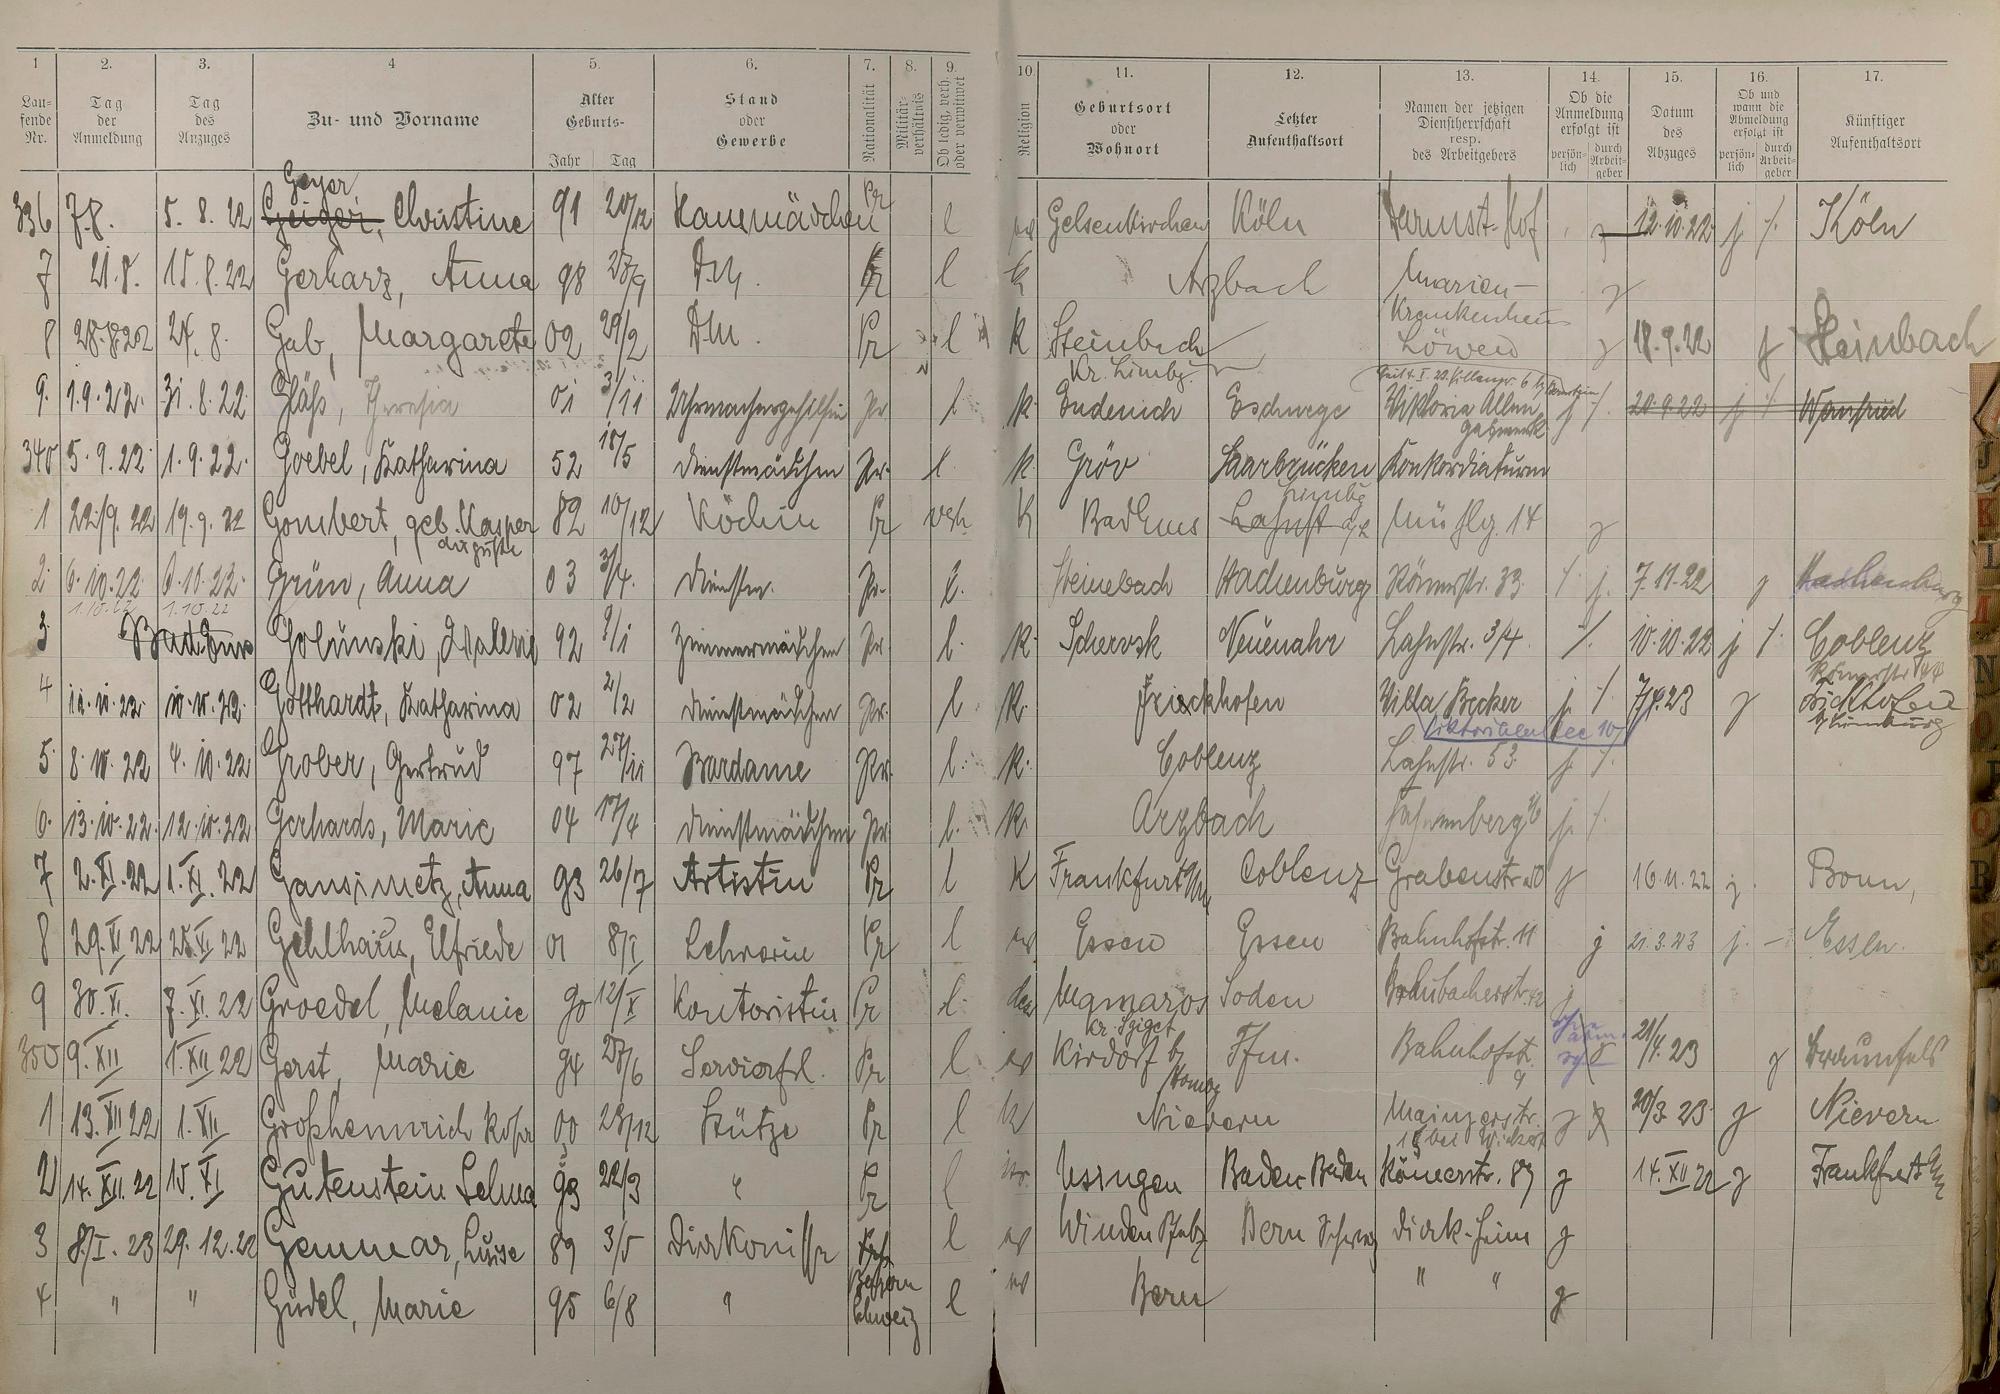 1 2. 3. 4 5. 6. 7. 8. 9. 10. 11. 12. 13. 14. 15. 16. 17.
Lau-fende Nr. Tag der Anmeldung Tag des Anzuges Zu- und Vorname Alter Geburts- Jahr Tag Stand oder Gewerbe Nationalität Militär-verhältnis Ob ledig, verh. oder verwitwet Religion Geburtsort oder Wohnort Letzter Aufenthaltsort Namen der jetzigen Dienstherrschaft resp. des Arbeitgebers Ob die Anmeldung erfolgt ist persön-lich durch Arbeit-geber Datum des Abzuges Ob und wann die Abmeldung erfolgt ist persön-lich durch Arbeit-geber Künftiger Aufenthaltsort
Geyer
336 7.8. 5. 8. 22 Geiger, Christine 91 20/12 Hausmädchen Pr l ev Gelsenkirchen Köln Darmst. Hof j 12.10.22 j /. Köln
7 21.8. 15.8.22 Gerharz, Anna 98 28/9 D.M. Pr l k Arzbach Marien-Krankenhaus j
8 28.8.22 24. 8. Gab, Margarete 02 29/2 DM. Pr l K Steinbach Kr. Limbg. Löwen j 18.9.22 j Steinbach
9. 1.9.22. 31.8.22. Gläß, Theresia 01 3/11 Uhrmachergehilfin Pr. l. k. Endenich Eschwege Viktoria Allee j /. 20.9.22 j /. Wanfried
340 5.9.22. 1.9.22. Goebel, Katharina 52 18/5 Dienstmädchen Pr. l. k. Gröv Saarbrücken Konkordiaturm
1 22./9.22 19.9.22 Gombert, geb. Kasper Auguste 82 10/12 Köchin Pr verh K Bad Ems Limbg Lahnst Mühlg. 14 j
2. 6.10.22. 6.10.22. Grün, Anna 03 3/4. Dienstm. Pr. l. Steinebach Hachenburg Römerstr. 33 /. j. 7.11.22 j Hachenburg
1.10.22 1.10.22
3 Bad Ems Golünski, Valerie 92 9/1 Zimmermädchen Pr. l. K. Schersk Neuenahr Lahnstr. 3/4. /. 10.10.22 j /. Coblenz
4 11.10.22 10.10.22. Gotthardt, Katharina 02 2/2 Dienstmädchen Pr. l. K. Frickhofen Villa Becker j. /. 7/4.23 j Frickhofen b/Limburg
Viktoriaallee 10
5 8.10.22 4.10.22 Grober, Gertrud 97 27/11 Bardame Pr. l. K. Coblenz Lahnstr. 53. j. /.
6. 13.10.22. 12.10.22 Gerhards, Marie 04 17/4 Dienstmädchen Pr. l. K. Arzbach j. /.
7 2.XI.22 1.XI.22 Gansimetz, Anna 93 26/7 Artistin Pr l K Frankfurt Coblenz Grabenstr. j 16.11.22 j. Bonn,
8 29.XI 22 25.XI 22 Gehlhaus, Elfriede 01 8/I Lehrerin Pr l ev Essen Essen Bahnhofstr. 11 j 21.3.23 j. – Essen.
9 30.XI. 7.XI.22 Groedel, Melanie 90 12/X Kontoristin Pr l. Mamaros Kr. Sziget Soden
350 9.XII 1.XII 22 Gerst, Marie 94 28/6 Servierfrl. Pr l ev Kirdorf b/Homburg Ffm. Bahnhofstr. 9 21/4.23 j Braunfels
1 13.XII 22 1.XII Großheinrich 00 23/12 Stütze Pr l K Nievern Mainzerstr. j 20/3.23. j Nievern
2 14.XII.22 15.XI Gutenstein Selma 93 22/3 " Pr l isr. Usingen Baden-Baden Römerstr. 87 j 14.XII 22 j Frankfurt
3 8./I.23 29.12.22 Gemmar, Luise 89 3/5 Diakonisse Bayern l ev Winden Pfalz Bern Schweiz Diak-heim j
4 " " Güdel, Marie 95 6/8 " Schweiz l ev Bern " " j
J
K
L
M
N
O
P
Q
R
S